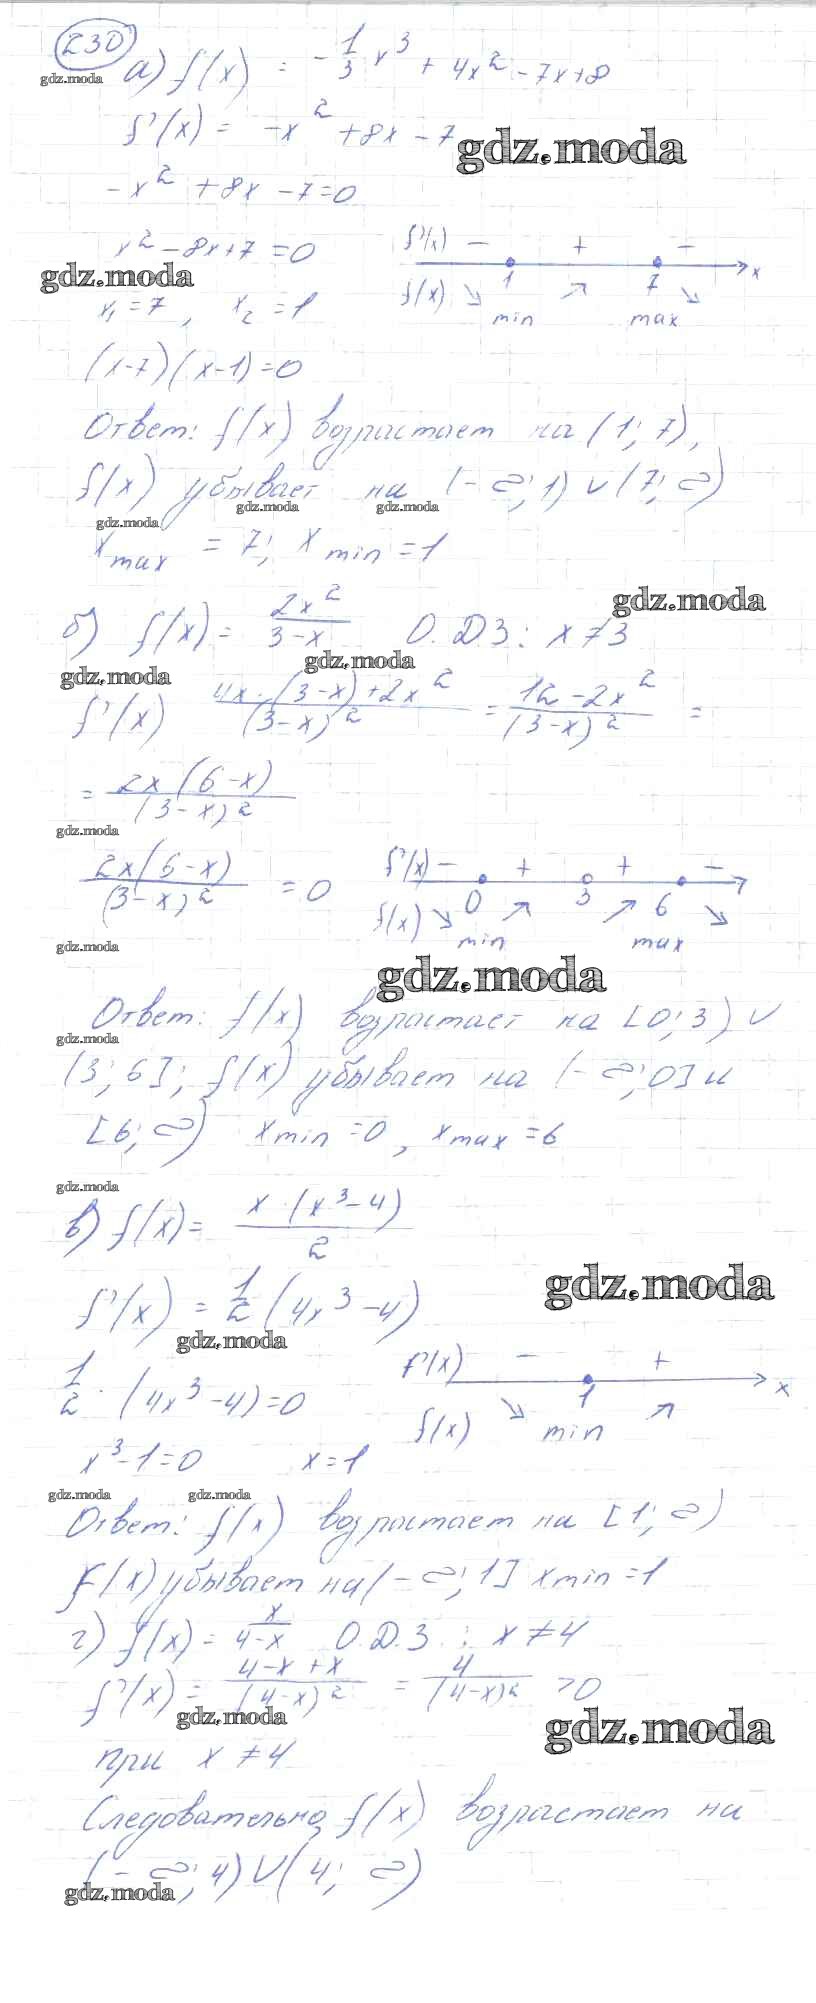 230
gdz.moda
а) f(x) = -1/3 x³ + 4x² - 7x + 8
f'(x) = -x² + 8x - 7
gdz.moda
-x² + 8x - 7 = 0
x² - 8x + 7 = 0
gdz.moda
x₁ = 7, x₂ = 1
f'(x) - + - x
1 7
f(x) ↘ min ↗ max ↘
(x-7)(x-1)=0
Ответ: f(x) возрастает на (1; 7),
f(x) убывает на (-∞; 1) ∪ (7; ∞)
gdz.moda gdz.moda
gdz.moda
x max = 7; x min = 1
gdz.moda
б) f(x) = 2x²/(3-x) О.ДЗ: x ≠ 3
gdz.moda
gdz.moda
f'(x) (4x·(3-x)+2x²)/(3-x)² = (12-2x²)/(3-x)² =
= 2x(6-x)/(3-x)²
gdz.moda
2x(6-x)/(3-x)² = 0
f'(x) - + + -
0 3 6
f(x) ↘ min ↗ ↗ max ↘
gdz.moda
gdz.moda
Ответ: f(x) возрастает на [0; 3) ∪
gdz.moda
(3; 6]; f(x) убывает на (-∞; 0] и
[6; ∞) x min = 0, x max = 6
gdz.moda
в) f(x) = x·(x³-4)/2
gdz.moda
f'(x) = 1/2 (4x³-4)
gdz.moda
1/2·(4x³-4)=0
f'(x) - + x
1
f(x) ↘ min ↗
x³-1=0 x=1
gdz.moda gdz.moda
Ответ: f(x) возрастает на [1; ∞)
F(x) убывает на (-∞; 1] x min = 1
г) f(x) = x/(4-x) О.Д.З.: x ≠ 4
f'(x) = (4-x+x)/(4-x)² = 4/(4-x)² > 0
gdz.moda
gdz.moda
при x ≠ 4
Следовательно, f(x) возрастает на
(-∞; 4) ∪ (4; ∞)
gdz.moda